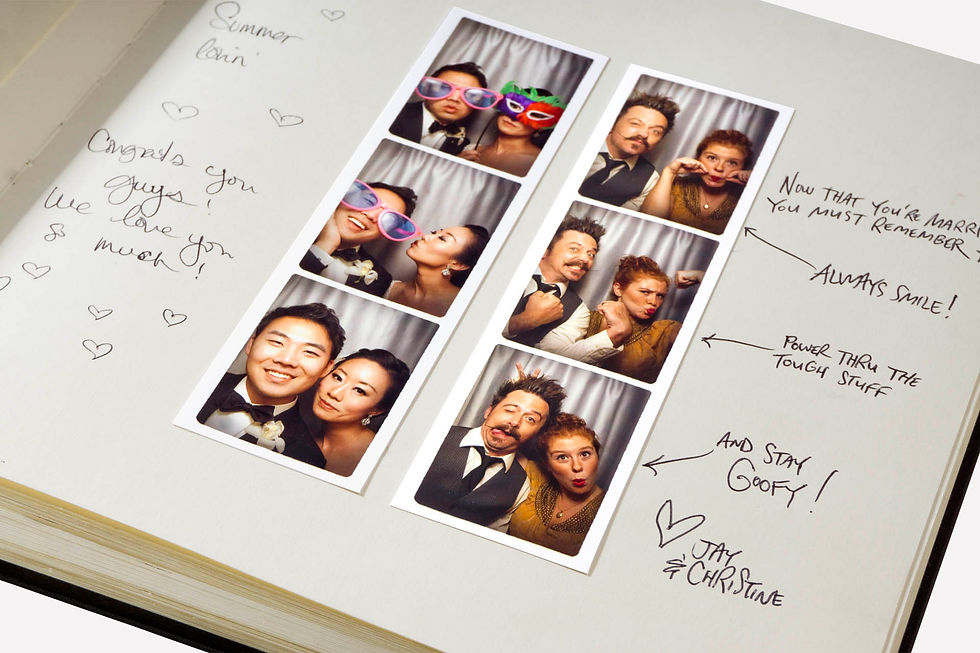 Summer
lovin'
Congrats you
guys!
We love you
so much!
NOW THAT YOU'RE
YOU MUST REMEMBER
ALWAYS SMILE!
POWER THRU THE
TOUGH STUFF
AND STAY
GOOFY!
JAY
& CHRISTINE